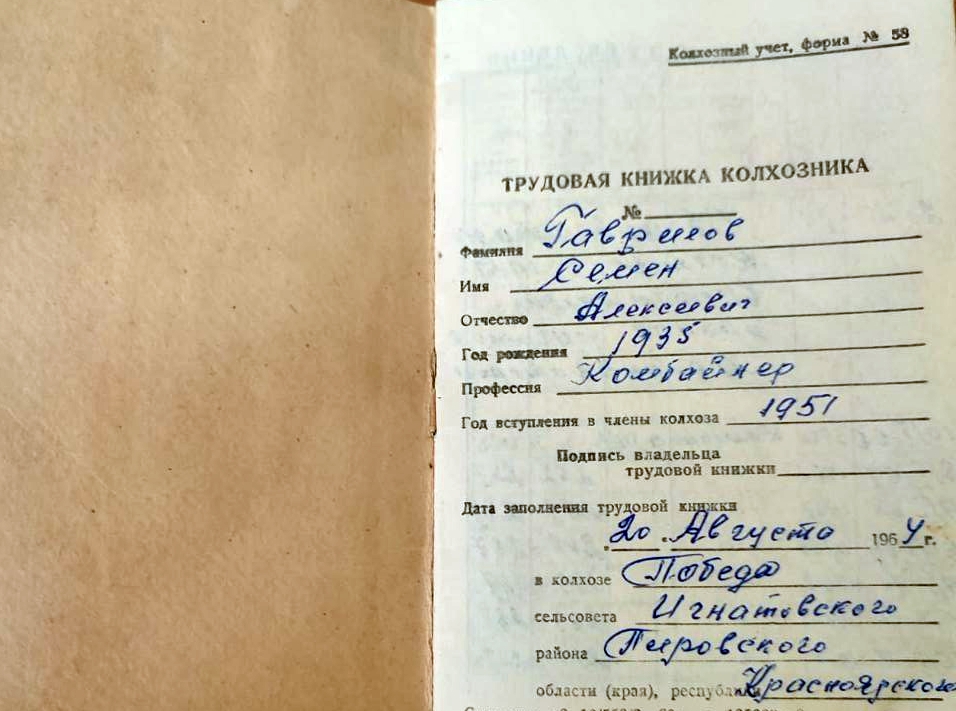 Колхозный учет, форма № 58
ТРУДОВАЯ КНИЖКА КОЛХОЗНИКА
№
Фамилия Гаврилов
Имя Семен
Отчество Алексеевич
Год рождения 1935
Профессия Комбайнер
Год вступления в члены колхоза 1951
Подпись владельца
трудовой книжки
Дата заполнения трудовой книжки
"20" Августа 1964 г.
в колхозе Победа
сельсовета Игнатовского
района Пировского
области (края), республики Красноярского